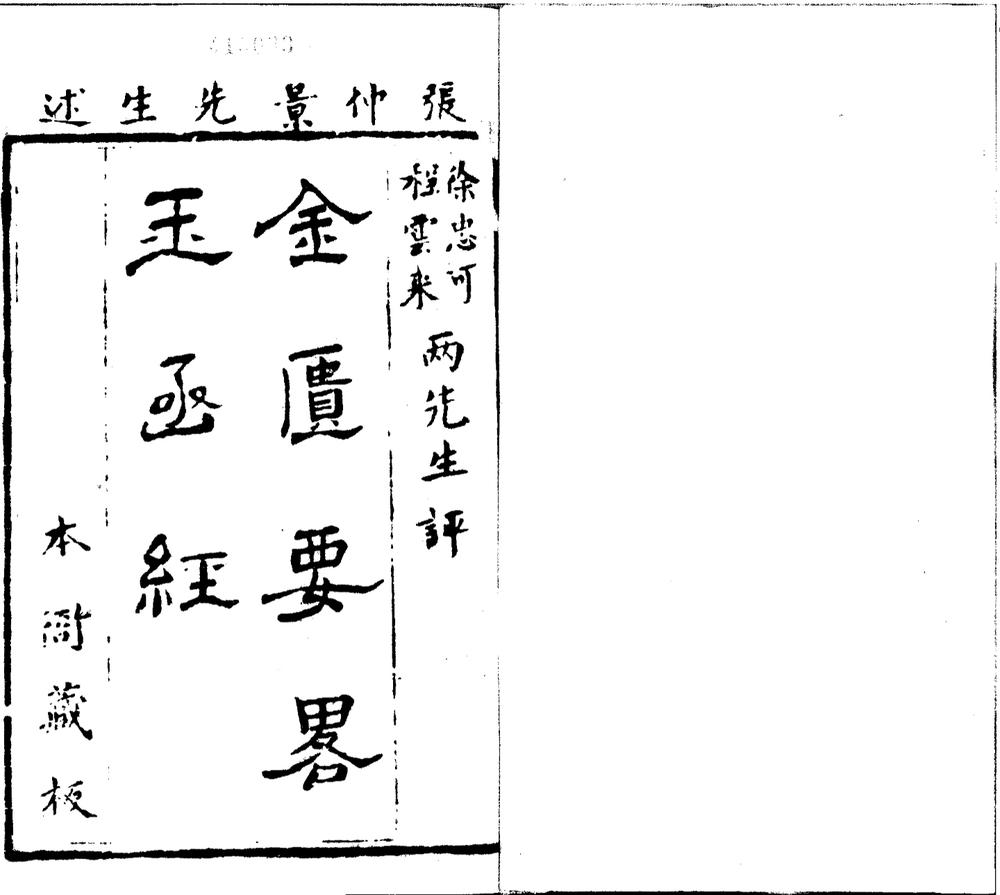 張仲景先生述
徐忠可
程雲来
两先生評
金匱要畧
玉函經
本衙藏板